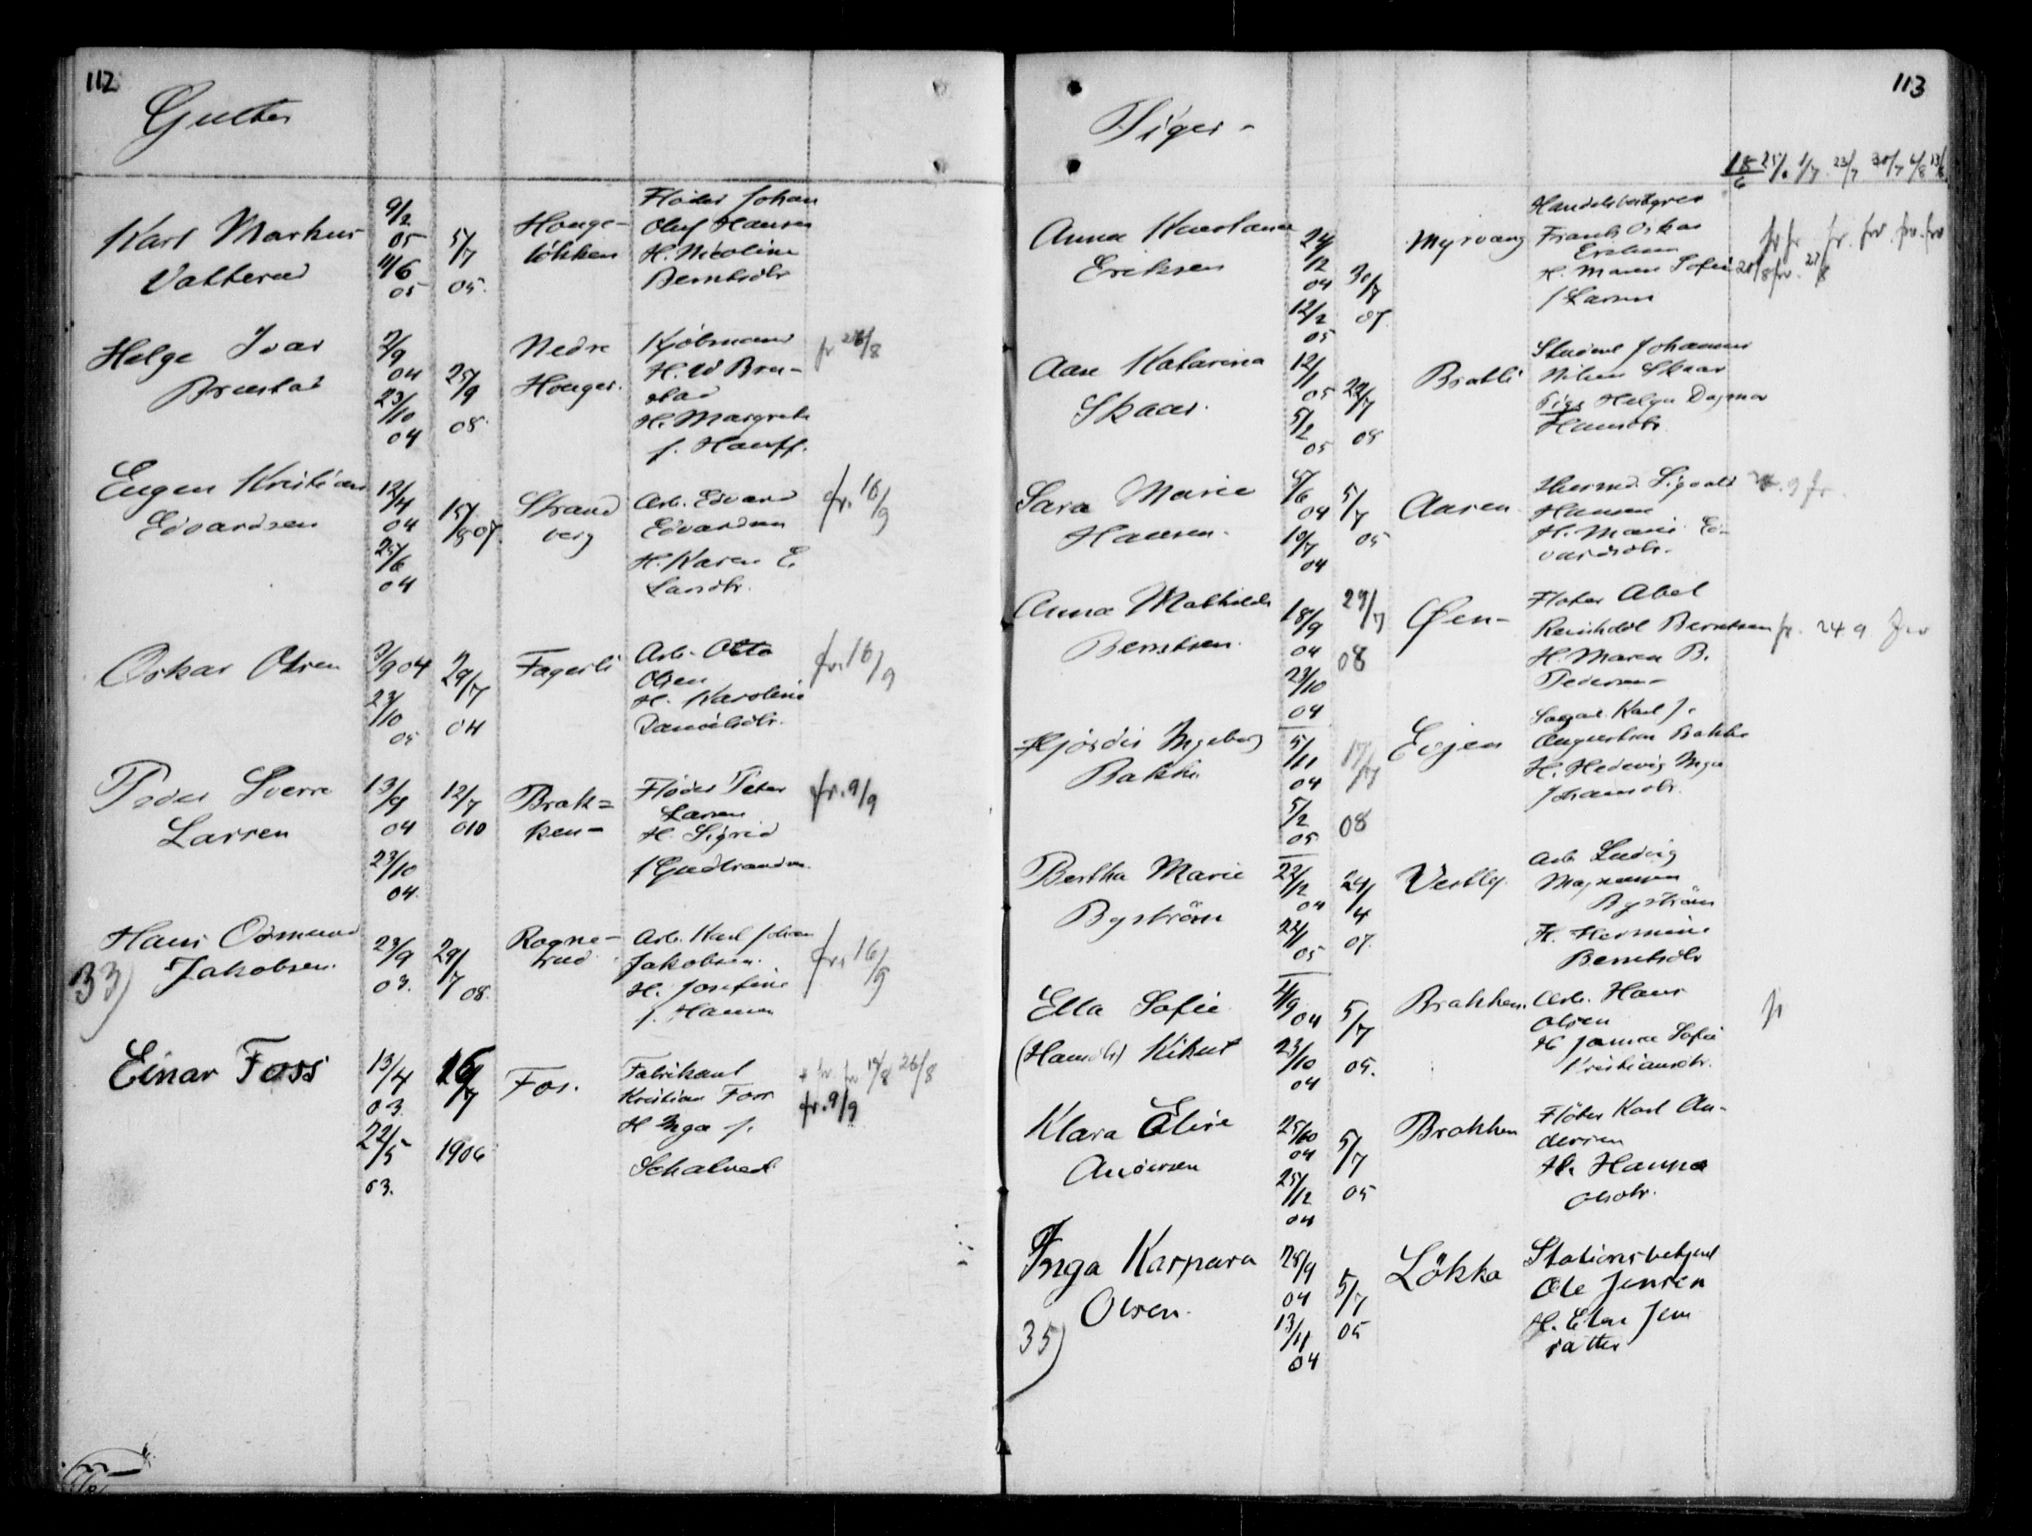 112
Gutter
Karl Markus
Vatterud
9/2
05
11/6
05
5/7
05.
Houge-
lökken
Fløder Johan
Oluf Hansen
H. Nicoline
Berntsdtr
Helge Ivar
Brustad
2/9
04
23/10
04
25/9
08.
Nedre
Houger.
Kjöbmand
H. W Bru-
stad
H. Margrete
f. Hauff.
fr 26/8
Eugen Kristian
Edvardsen
12/4
04
25/6
04
15/9 07.
Strand
berg
Arb. Edvard
Edvardsen
H. Karen E.
Larsdtr.
fr. 16/9
Oskar Olsen
3/9 04
23/10
05
29/7
04
Fagerli
Arb. Otto
Olsen
H. Karoline
Danielsdtr.
fr. 16/9
Peder Sverre
Larsen
13/9
04
23/10
04.
12/7
010
Brak=
ken-
Fløder Peter
Larsen
H. Sigrid
f Gudbrandsen.
fr. 9/9
Hans Osmund
Jakobsen.
33)
23/9
03.
29/7
08.
Rogne-
rud
Arb. Karl Johan
Jakobsen.
H. Josefine
f. Hansen
fr. 16/9
Einar Foss
13/4
03.
22/5
03.
26/7
1906
Fos.
Fabrikant
Kristian Foss
H Inga f.
Schalved
fr fr 19/8 26/8
fr. 9/9
113
Piger -
18/6 25/6 1/7 23/7 30/7 6/8 13/8
Anna
Eriksen
24/12
04
12/2
05
30/7
07.
Myrvang
Handelsbestyrer
Frants Oskar
Eriksen
H. Maren Sofie
f Larsen
fr fr. fr. frv. frv. frv
20/8 frv. 27/8
Aase Katarina
Skaar.
12/1
05
5/2
05
29/7
08
Bratli
Student Johannes
Nilsen Skaar
Pige Helga Dagmar
Hansdtr.
Sara Marie
Hansen.
5/6
04
10/7
04
5/7
05
Aasen.
Sigvald
Hansen
H. Marie Ed-
vardsdtr.
9 fr.
Anna Mathilde
Berntsen.
18/9
04
23/10
04
29/7
08
Øen-
Floter Abel
Reinholdt Berntsen
H. Maren B.
Pedersen-
fr. 24 9 frv
Hjørdis Ingeborg
Bakke.
5/11
04
5/2
05
17/7
08
Evjen
Sagarb. Karl J.
Augustsen Bakke
H. Hedevig Inga
Johansdtr.
Bertha Marie
Byström
22/12
04
22/1
05
24/4
07.
Vestby.
Arb. Ludvig
Magnussen
Byström
H. Hermine
Berntsdtr
Ella Sofie
(Hansdtr) Kihut
4/9
04
23/10
04
5/7
05.
Brakken.
Arb. Hans
Olsen
H Janna Sofie
Kristiansdtr.
fr
Klara Elise
Andersen
25/10
04
25/12
04
5/7
05
Brakken
Flöter Karl An-
dersen
H. Hanna
Olsdtr.
Inga Kaspara
Olsen.
35)
28/9
04
13/11
04
5/7
05
Lökka
Stationsbetjent
Ole Jensen
H. Elen Jens
datter